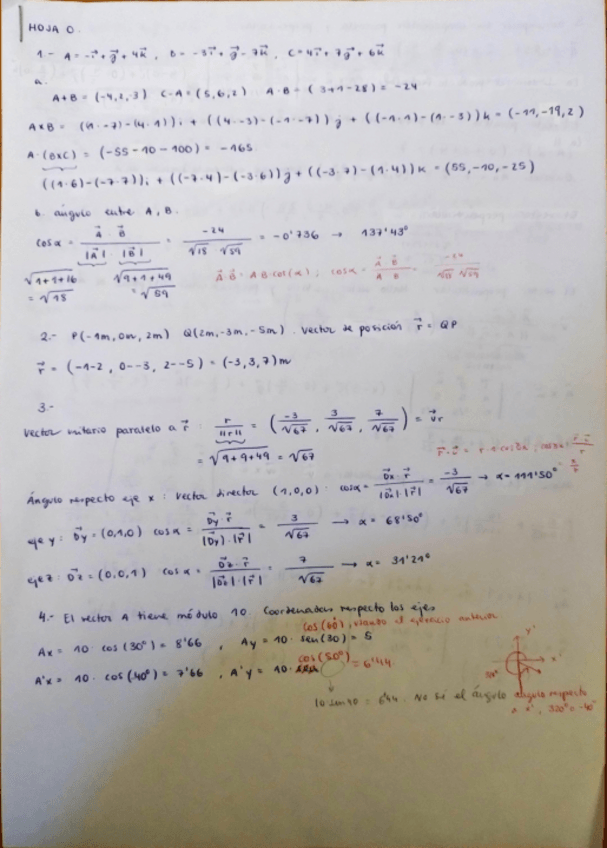 HOJA 0.
1.- A = -i⃗ + j⃗ + 4k⃗, B = -3i⃗ + j⃗ - 7k⃗, C = 4i⃗ + 7j⃗ + 6k⃗
a.
A+B = (-4,2,-3) C-A = (5,6,2) A·B = (3+1-28) = -24
AxB = ((1·-7)-(4·1))i + ((4·-3)-(-1·-7))j + ((-1·1)-(1·-3))k = (-11,-19,2)
A·(BxC) = (-55-10-100) = -165
((1·6)-(-7·7))i + ((-7·4)-(-3·6))j + ((-3·7)-(1·4))k = (55,-10,-25)
b. ángulo entre A, B.
cos α = A⃗·B⃗ / |A⃗|·|B⃗| = -24 / √18 √59 = -0'736 → 137'43º
√1+1+16 = √18 √9+1+49 = √59
A⃗·B⃗ = A·B·cos(α); cos α = A⃗ B⃗ / A B = -24 / √18 √59
2.- P(-1m, 0m, 2m) Q(2m, -3m, -5m). Vector de posición r⃗ = QP
r⃗ = (-1-2, 0--3, 2--5) = (-3,3,7)m
3.-
Vector unitario paralelo a r⃗: r / ||r|| = (-3/√67, 3/√67, 7/√67) = u⃗r
= √9+9+49 = √67
Ángulo respecto eje x: Vector director (1,0,0). cos α = D⃗x·r⃗ / |D⃗x|·|r⃗| = -3/√67 → α = 111'50º
eje y: D⃗y = (0,1,0) cos α = D⃗y·r⃗ / |D⃗y|·|r⃗| = 3/√67 → α = 68'50º
eje z: D⃗z = (0,0,1) cos α = D⃗z·r⃗ / |D⃗z|·|r⃗| = 7/√67 → α = 31'21º
4.- El vector A tiene módulo 10. Coordenadas respecto los ejes
cos(60), usando el ejercicio anterior
Ax = 10·cos(30º) = 8'66, Ay = 10·sen(30) = 5
cos(50º) = 6'44
A'x = 10·cos(40º) = 7'66, A'y = 10·sen
y'
x'
10·sen40 = 6'44. No sé el ángulo
ángulo respecto
a x', 320º = -40º